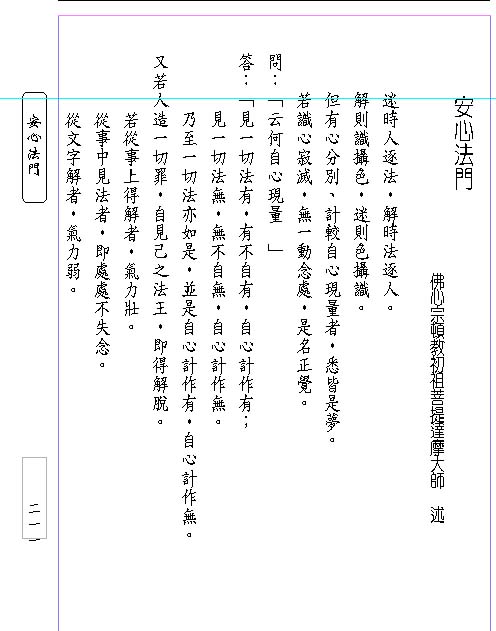 安心法門
佛心宗頓教初祖菩提達摩大師　述
迷時人逐法・解時法逐人。
解則識攝色・迷則色攝識。
但有心分別、計較自心現量者・悉皆是夢。
若識心寂滅・無一動念處・是名正覺。
問：「云何自心現量　」
答：「見一切法有・有不自有・自心計作有；
見一切法無・無不自無・自心計作無。
乃至一切法亦如是・並是自心計作有・自心計作無。
又若人造一切罪・自見己之法王・即得解脫。
若從事上得解者・氣力壯。
從事中見法者・即處處不失念。
從文字解者・氣力弱。
安心法門
二一一